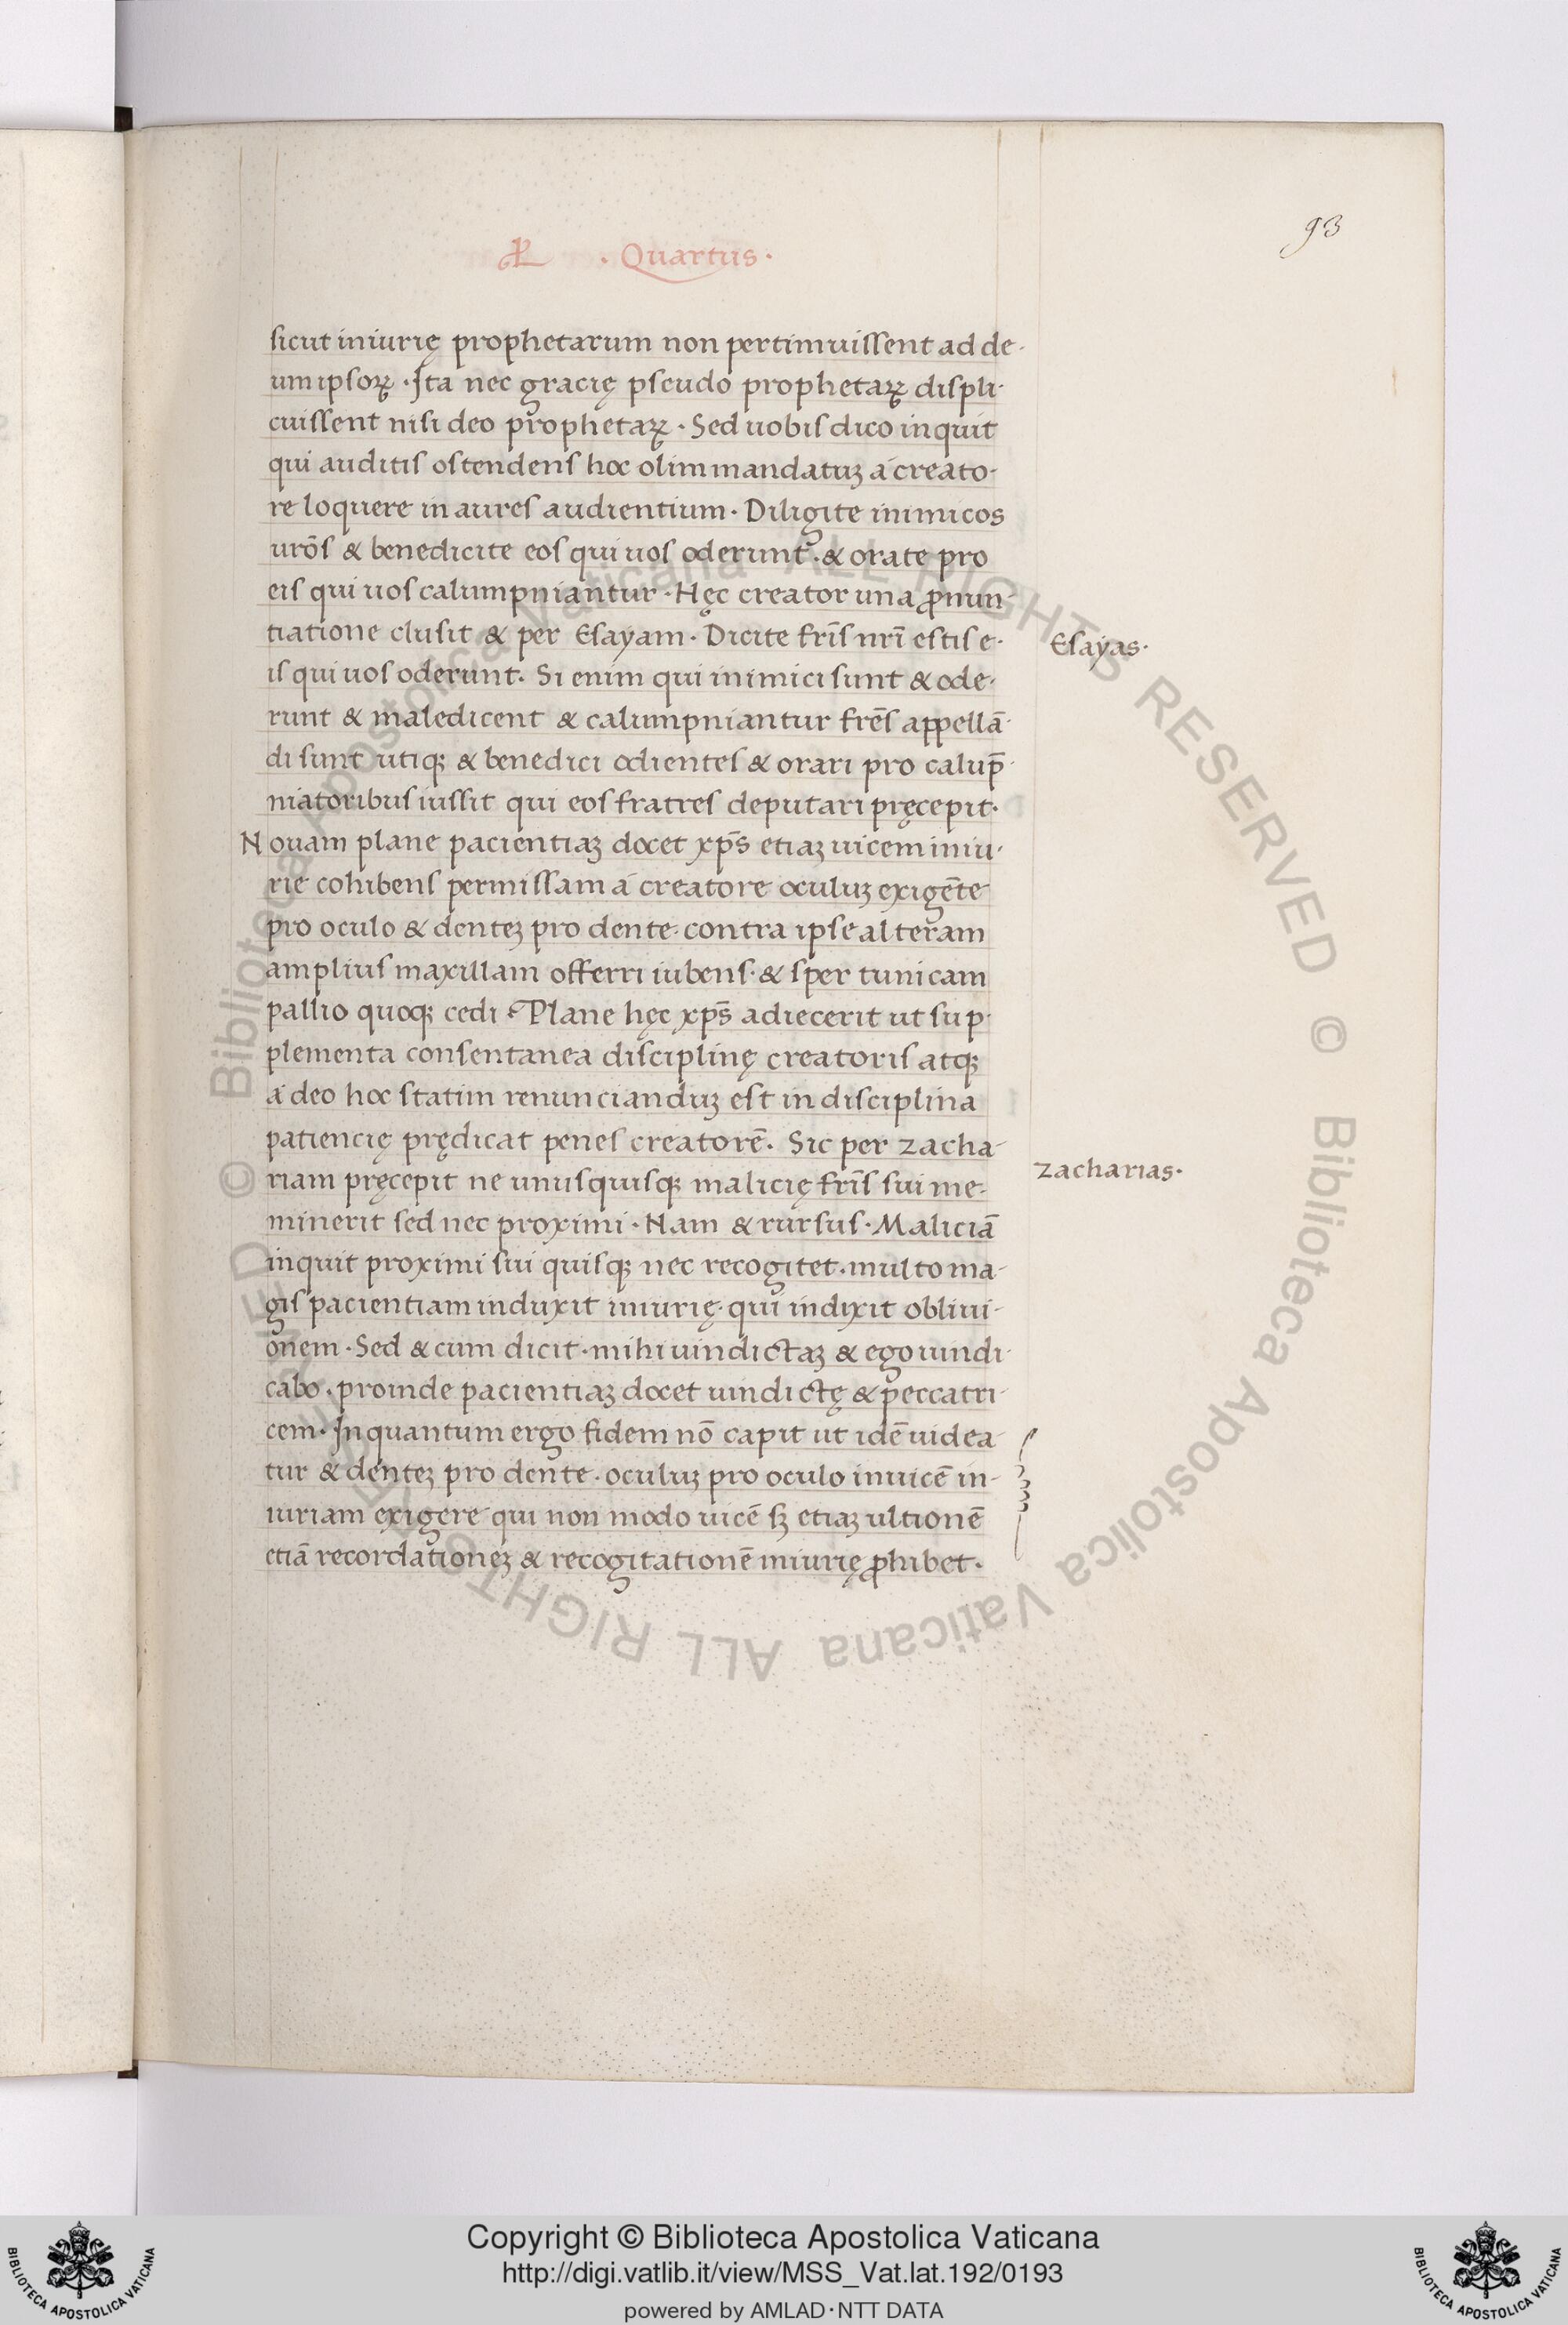 93
. Quartus .
sicut iniurię prophetarum non pertimuissent ad de-
um ipsoꝝ . Ita nec gracię pseudo prophetaꝝ displi-
cuissent nisi deo prophetaꝝ . Sed uobis dico inquit
qui auditis ostendens hoc olim mandatuꝫ a creato-
re loquere in aures audientium . Diligite inimicos
ur̄os & benedicite eos qui uos oderunt . & orate pro
eis qui uos calumpniantur . Hęc creator una ꝓnun-
tiatione clusit & per Esayam . Dicite fr̄is nr̄i estis e-
is qui uos oderunt . Si enim qui inimici sunt & ode-
runt & maledicent & calumpniantur frēs appellā-
di sunt utiqꝫ & benedici odientes & orari pro calup̄-
niatoribus iussit qui eos fratres deputari pręcepit .
Esayas .
Nouam plane pacientiaꝫ docet xp̄s etiaꝫ uicem iniu-
rie cohibens permissam a creatore oculuꝫ exigēte
pro oculo & denteꝫ pro dente . contra ipse alteram
amplius maxillam offerri iubens . & sper tunicam
pallio quoqꝫ cedi . Plane hęc xp̄s adiecerit ut sup-
plementa consentanea disciplinę creatoris atqꝫ
a deo hoc statim renuncianduꝫ est in disciplina
patiencię prędicat penes creatorē . Sic per zacha-
riam pręcepit ne unusquisqꝫ malicię fr̄is sui me-
minerit sed nec proximi . Nam & rursus . Maliciā
inquit proximi sui quisqꝫ nec recogitet . multo ma-
gis pacientiam induxit iniurię . qui indixit obliui-
onem . Sed & cum dicit . mihi uindictaꝫ & ego uindi-
cabo . proinde pacientiaꝫ docet uindictę & peccatri-
cem . Inquantum ergo fidem nō capit ut idē uidea-
tur & denteꝫ pro dente . oculuꝫ pro oculo inuicē in-
iuriam exigere qui non modo uicē sꝫ etiaꝫ ultionē
etiā recordationeꝫ & recogitationē iniurię ꝓhibet .
zacharias .
© Biblioteca Apostolica Vaticana ALL RIGHTS RESERVED © Biblioteca Apostolica Vaticana ALL RIGHTS RESERVED
Copyright © Biblioteca Apostolica Vaticana
http://digi.vatlib.it/view/MSS_Vat.lat.192/0193
powered by AMLAD·NTT DATA
BIBLIOTECA APOSTOLICA VATICANA
BIBLIOTECA APOSTOLICA VATICANA